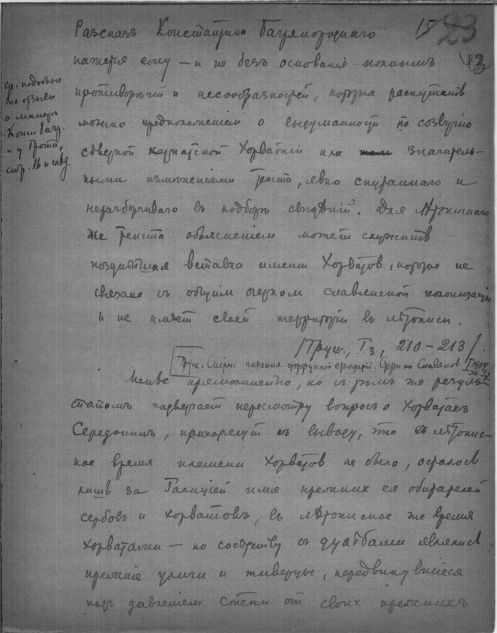 Разсказъ Константина Багрянороднаго
15 23
кажется ему — и не безъ основанія полнымъ
13
противорѣчій и несообразностей, которыя распутать
можно предположеніемъ о выдуманности по созвучію
сѣверной Хорватіи или значитель-
ными измѣненіями текста, явно и
неразборчиваго въ подборѣ свѣдѣній. Для лѣтописнаго
же текста объясненіемъ можетъ служить —
позднѣйшая вставка имени Хорватовъ, которое не
связано съ общимъ очеркомъ славянской колонизаціи
и не имѣетъ своей территоріи въ лѣтописи.
ср. подобные
же отзывы
о
Конст. Багр.
у Грота,
стр.
/Груш., I₃, 210-213/.
Менѣе, но съ тѣмъ же резуль-
татомъ подвергаетъ пересмотру вопросъ о Хорватахъ
Середонинъ, приходящій къ выводу, что въ лѣтопис-
ное время племени Хорватовъ не было, осталось
лишь за Галиціей имя прежнихъ ея обитателей
сербовъ и Хорватовъ, въ лѣтописное же время
Хорватами — по сосѣдству съ дулѣбами явились
прежніе уличи и тиверцы, передвинувшіеся
подъ давленіемъ степи отъ своихъ прежнихъ